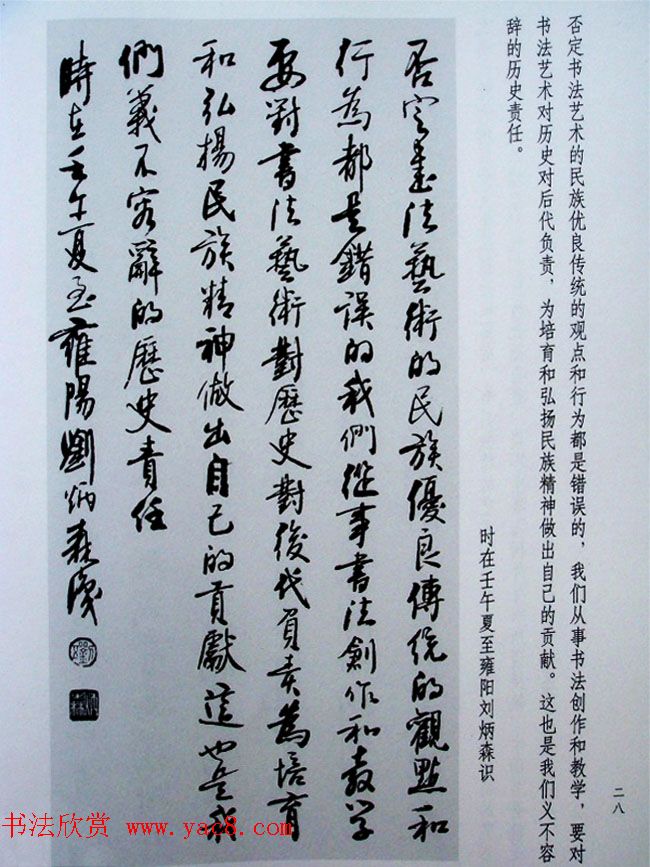 否定书法艺术的民族优良传统的观点和行为都是错误的，我们从事书法创作和教学，要对
书法艺术对历史对后代负责，为培育和弘扬民族精神做出自己的贡献。这也是我们义不容
辞的历史责任。
时在壬午夏至雍阳刘炳森识
二八
否定書法藝術的民族優良傳統的觀點和
行為都是錯誤的我們從事書法創作和教学
要對書法藝術對歷史對後代負责為培育
和弘揚民族精神做出自己的貢獻這也是我
們義不容辭的歷史責任
時在壬午夏至雍陽劉炳森識
书法欣赏 www.yac8.com